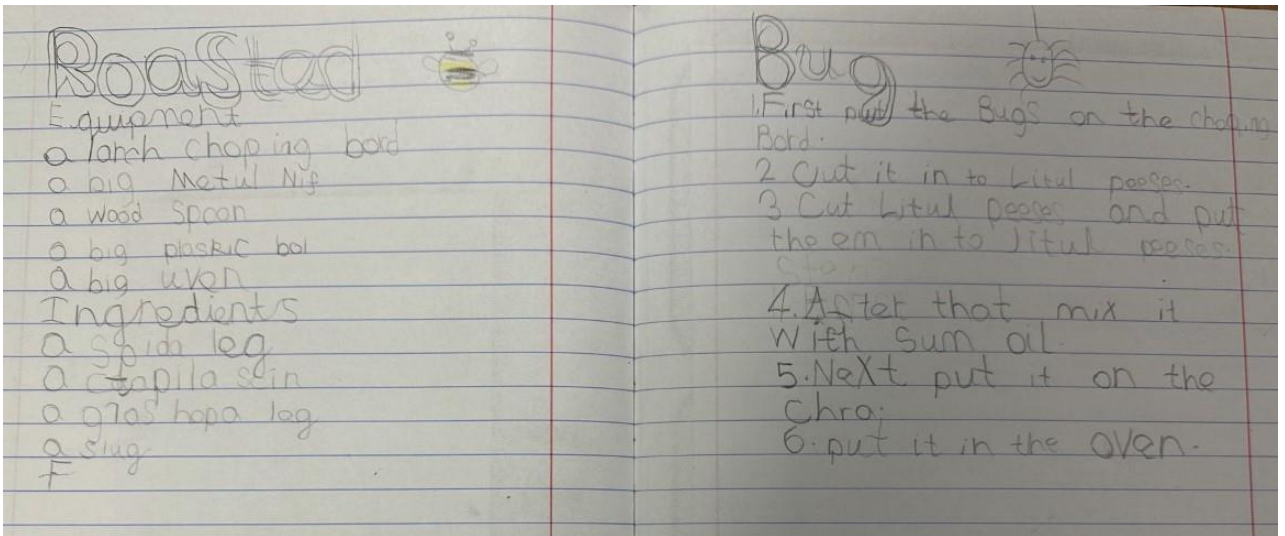 Roasted
Equipment
a larch choping bord
a big Metul Nif
a wood Spoon
a big plaskic bol
a big uven
Ingredients
a spida leg
a ctapila scin
a gras hopa leg
a slug
F
Bug
1. First put the Bugs on the choping
Bord.
2 Cut it in to Litul peeses.
3 Cut Litul peeses and put
the em in to litul peeses.
4. After that mix it
With Sum oil.
5. NeXt put it on the
Chra.
6. put it in the oven.